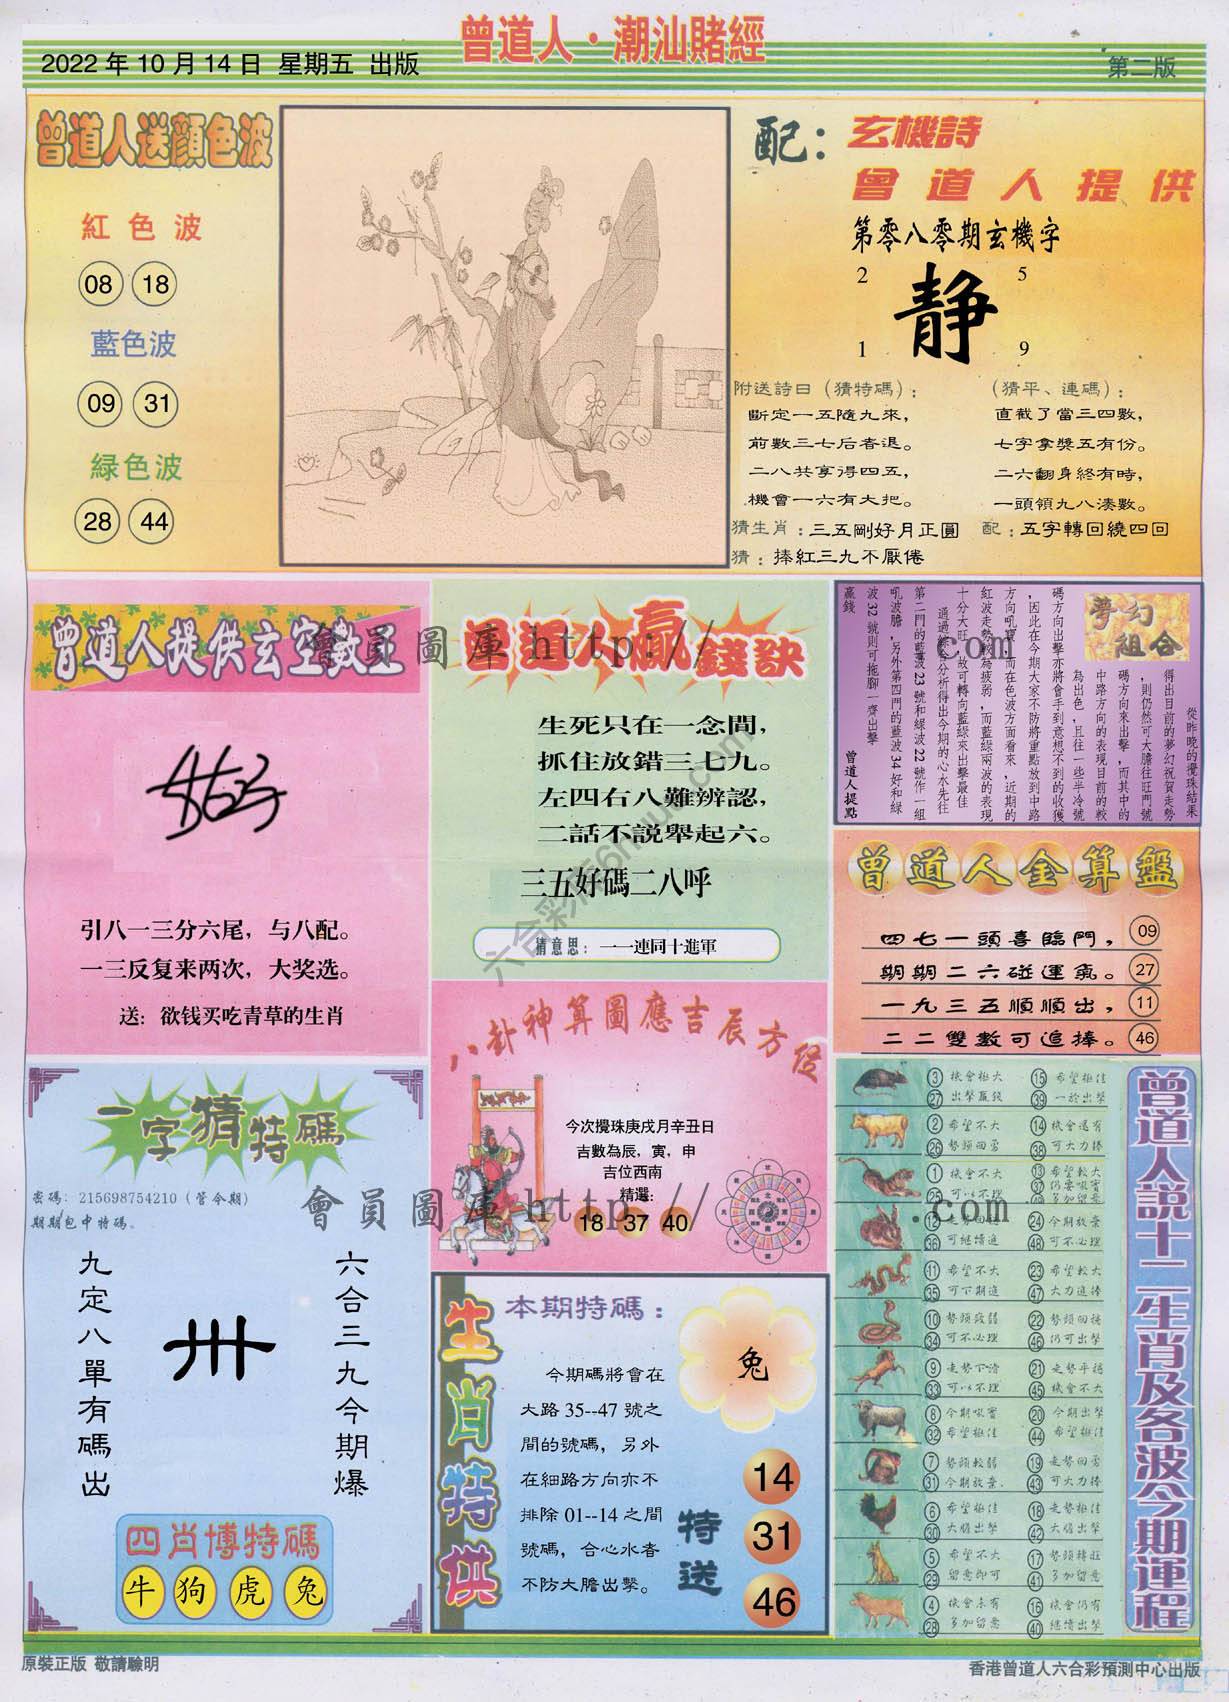 曾道人·潮汕賭經
2022 年 10 月 14 日 星期五 出版
第二版
曾道人送顏色波
紅 色 波
08 18
藍色波
09 31
綠色波
28 44
配：玄機詩
曾道人提供
第零八零期玄機字
2 5
静
1 9
附送詩曰（猜特碼）：
斷定一五隨九來，
前數三七后者退。
二八共享得四五，
機會一六有大把。
（猜平、連碼）：
直截了當三四數，
七字拿獎五有份。
二六翻身終有時，
一頭領九八湊數。
猜生肖：三五剛好月正圓 配：五字轉回繞四回
猜：捧紅三九不厭倦
曾道人提供玄空數王
引八一三分六尾，与八配。
一三反复来两次，大奖选。
送：欲钱买吃青草的生肖
曾道人贏錢訣
生死只在一念間，
抓住放錯三七九。
左四右八難辨認，
二話不說舉起六。
三五好碼二八呼
猜意思：一一連同十進軍
夢幻組合
從昨晚的攪珠結果
得出目前的夢幻祝賀走勢
，則仍然可大膽往旺門號
碼方向來出擊，而其中的
中路方向的表現目前的較
為出色，且往一些半冷號
碼方向出擊亦將會手到意想不到的收獲
，因此在今期大家不防將重點放到中路
方向吼寶，而在色波方面看來，近期的
紅波走勢較為疲弱，而藍綠兩波的表現
十分大旺，故可轉向藍綠來出擊最佳
通過綜合分析得出今期的心水先往
第二門的藍波 23 號和綠波 22 號作一組
吼波膽，另外第四門的藍波 34 好和綠
波 32 號則可拖腳一齊出擊
贏錢 曾道人提點
曾道人金算盤
四七一頭喜臨門， 09
期期二六碰運氣。 27
一九三五順順出， 11
二二雙數可追捧。 46
八卦神算圖應吉辰方位
今次攪珠庚戌月辛丑日
吉數為辰，寅，申
吉位西南
精選:
18 37 40
一字猜特碼
密碼：215698754210（管今期）
期期包中特碼。
九定八單有碼出
卅
六合三九今期爆
四肖博特碼
牛 狗 虎 兔
生肖特供
本期特碼：
兔
今期碼將會在
大路 35--47 號之
間的號碼，另外
在細路方向亦不
排除 01--14 之間
號碼，合心水者
不防大膽出擊。
特送
14
31
46
曾道人説十二生肖及各波今期運程
3 機會極大 15 希望極佳
27 出擊贏錢 39 一於出擊
2 希望不大 14 機會還有
26 勢頭回勇 38 可大力捧
1 機會不大 13 希望較大
25 可以不理 37 仍要吼實
多加留意
12 走勢回 24 今期放棄
36 可繼續追 48 可不必理
11 希望不大 23 希望較大
35 可下期追 47 大力追捧
10 勢頭疲弱 22 勢頭回穩
34 可不必理 46 仍可出擊
9 走勢下滑 21 走勢平穩
33 可以不理 45 機會不大
8 今期吼實 20 今期出擊
32 希望極佳 44 希望極佳
7 勢頭較弱 19 走勢回勇
31 今期放棄. 43 可大力捧
6 希望極佳 18 走勢極佳
30 大膽出擊 42 大膽出擊
5 希望不大 17 勢頭轉旺
29 留意即可 41 多加留意
4 機會未有 16 機會仍有
28 多加留意 40 繼續出擊
會員圖庫 http:// .com
會員圖庫 http:// .com
原裝正版 敬請驗明
香港曾道人六合彩預測中心出版